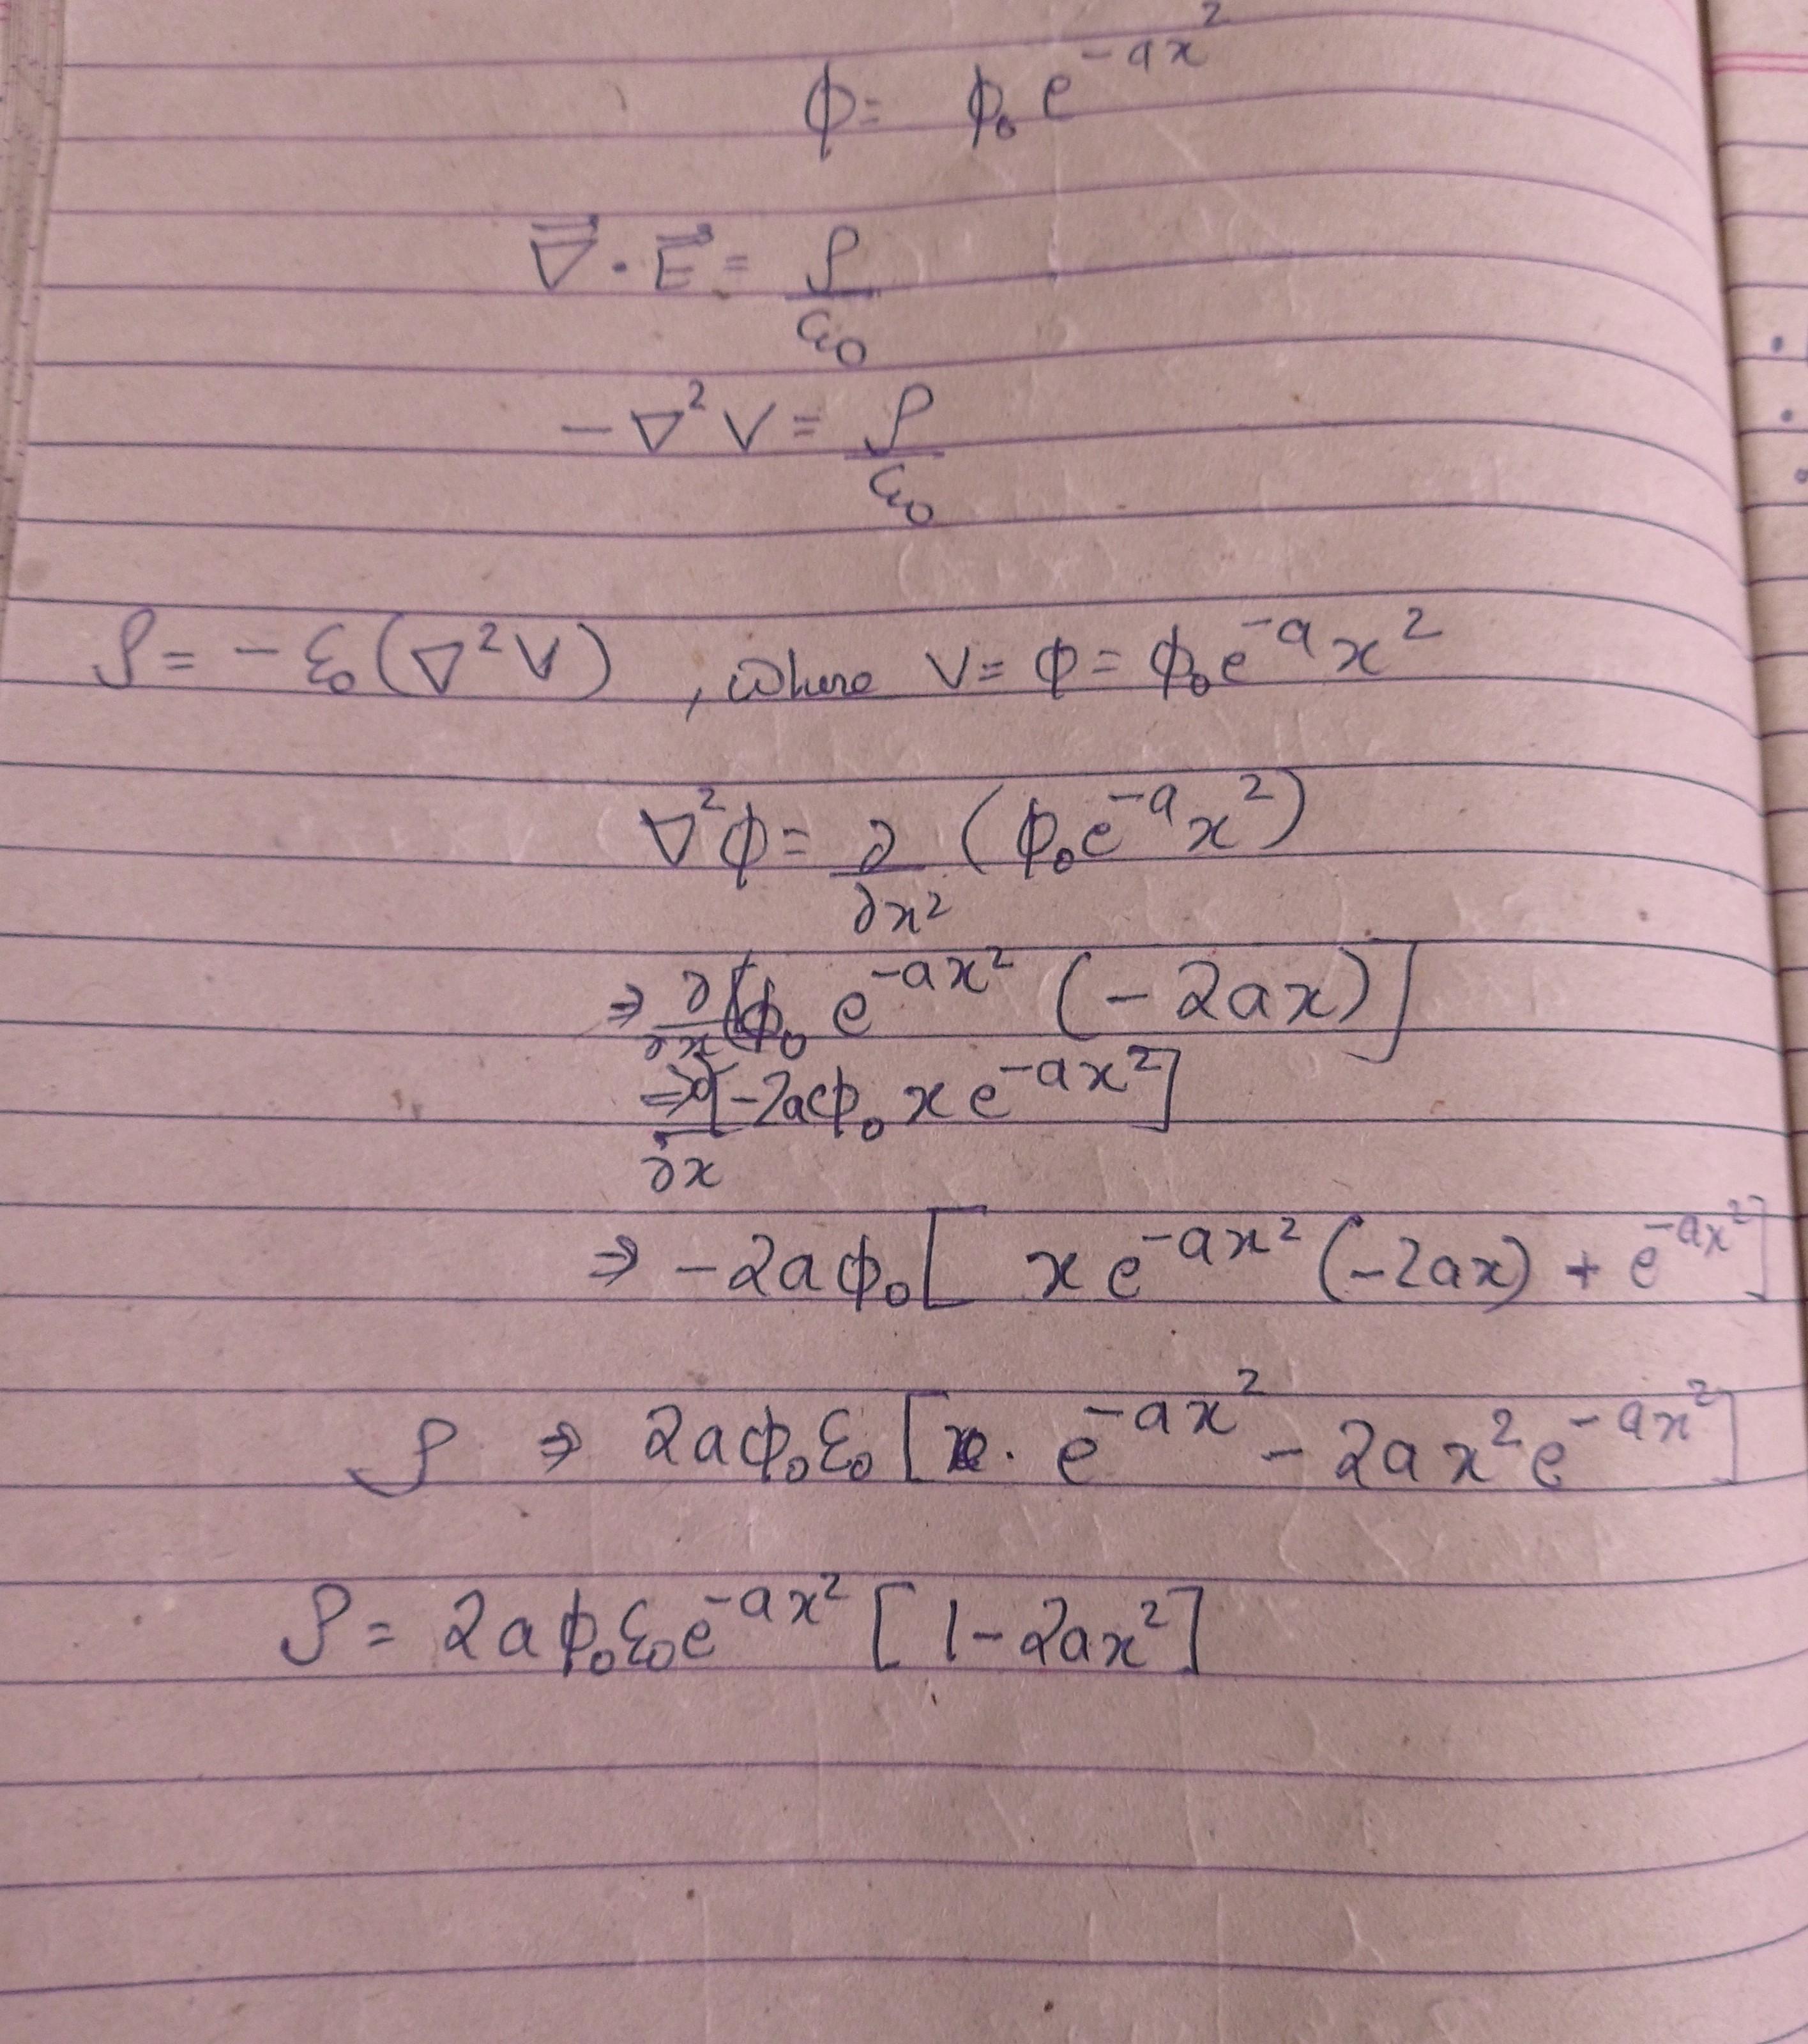 ϕ = ϕ₀ e^{-ax²}
∇⃗ · E⃗ = ρ/ε₀
-∇²V = ρ/ε₀
ρ = -ε₀(∇²V) , where V = ϕ = ϕ₀e^{-a}x²
∇²ϕ = ∂/∂x² (ϕ₀e^{-a}x²)
⇒ ∂/∂x [ϕ₀ e^{-ax²} (-2ax)]
⇒ ∂/∂x [-2aϕ₀ x e^{-ax²}]
⇒ -2aϕ₀[ x e^{-ax²} (-2ax) + e^{-ax²}]
ρ ⇒ 2aϕ₀ε₀ [ · e^{-ax²} - 2ax² e^{-ax²}]
ρ = 2aϕ₀ε₀e^{-ax²} [1-2ax²]